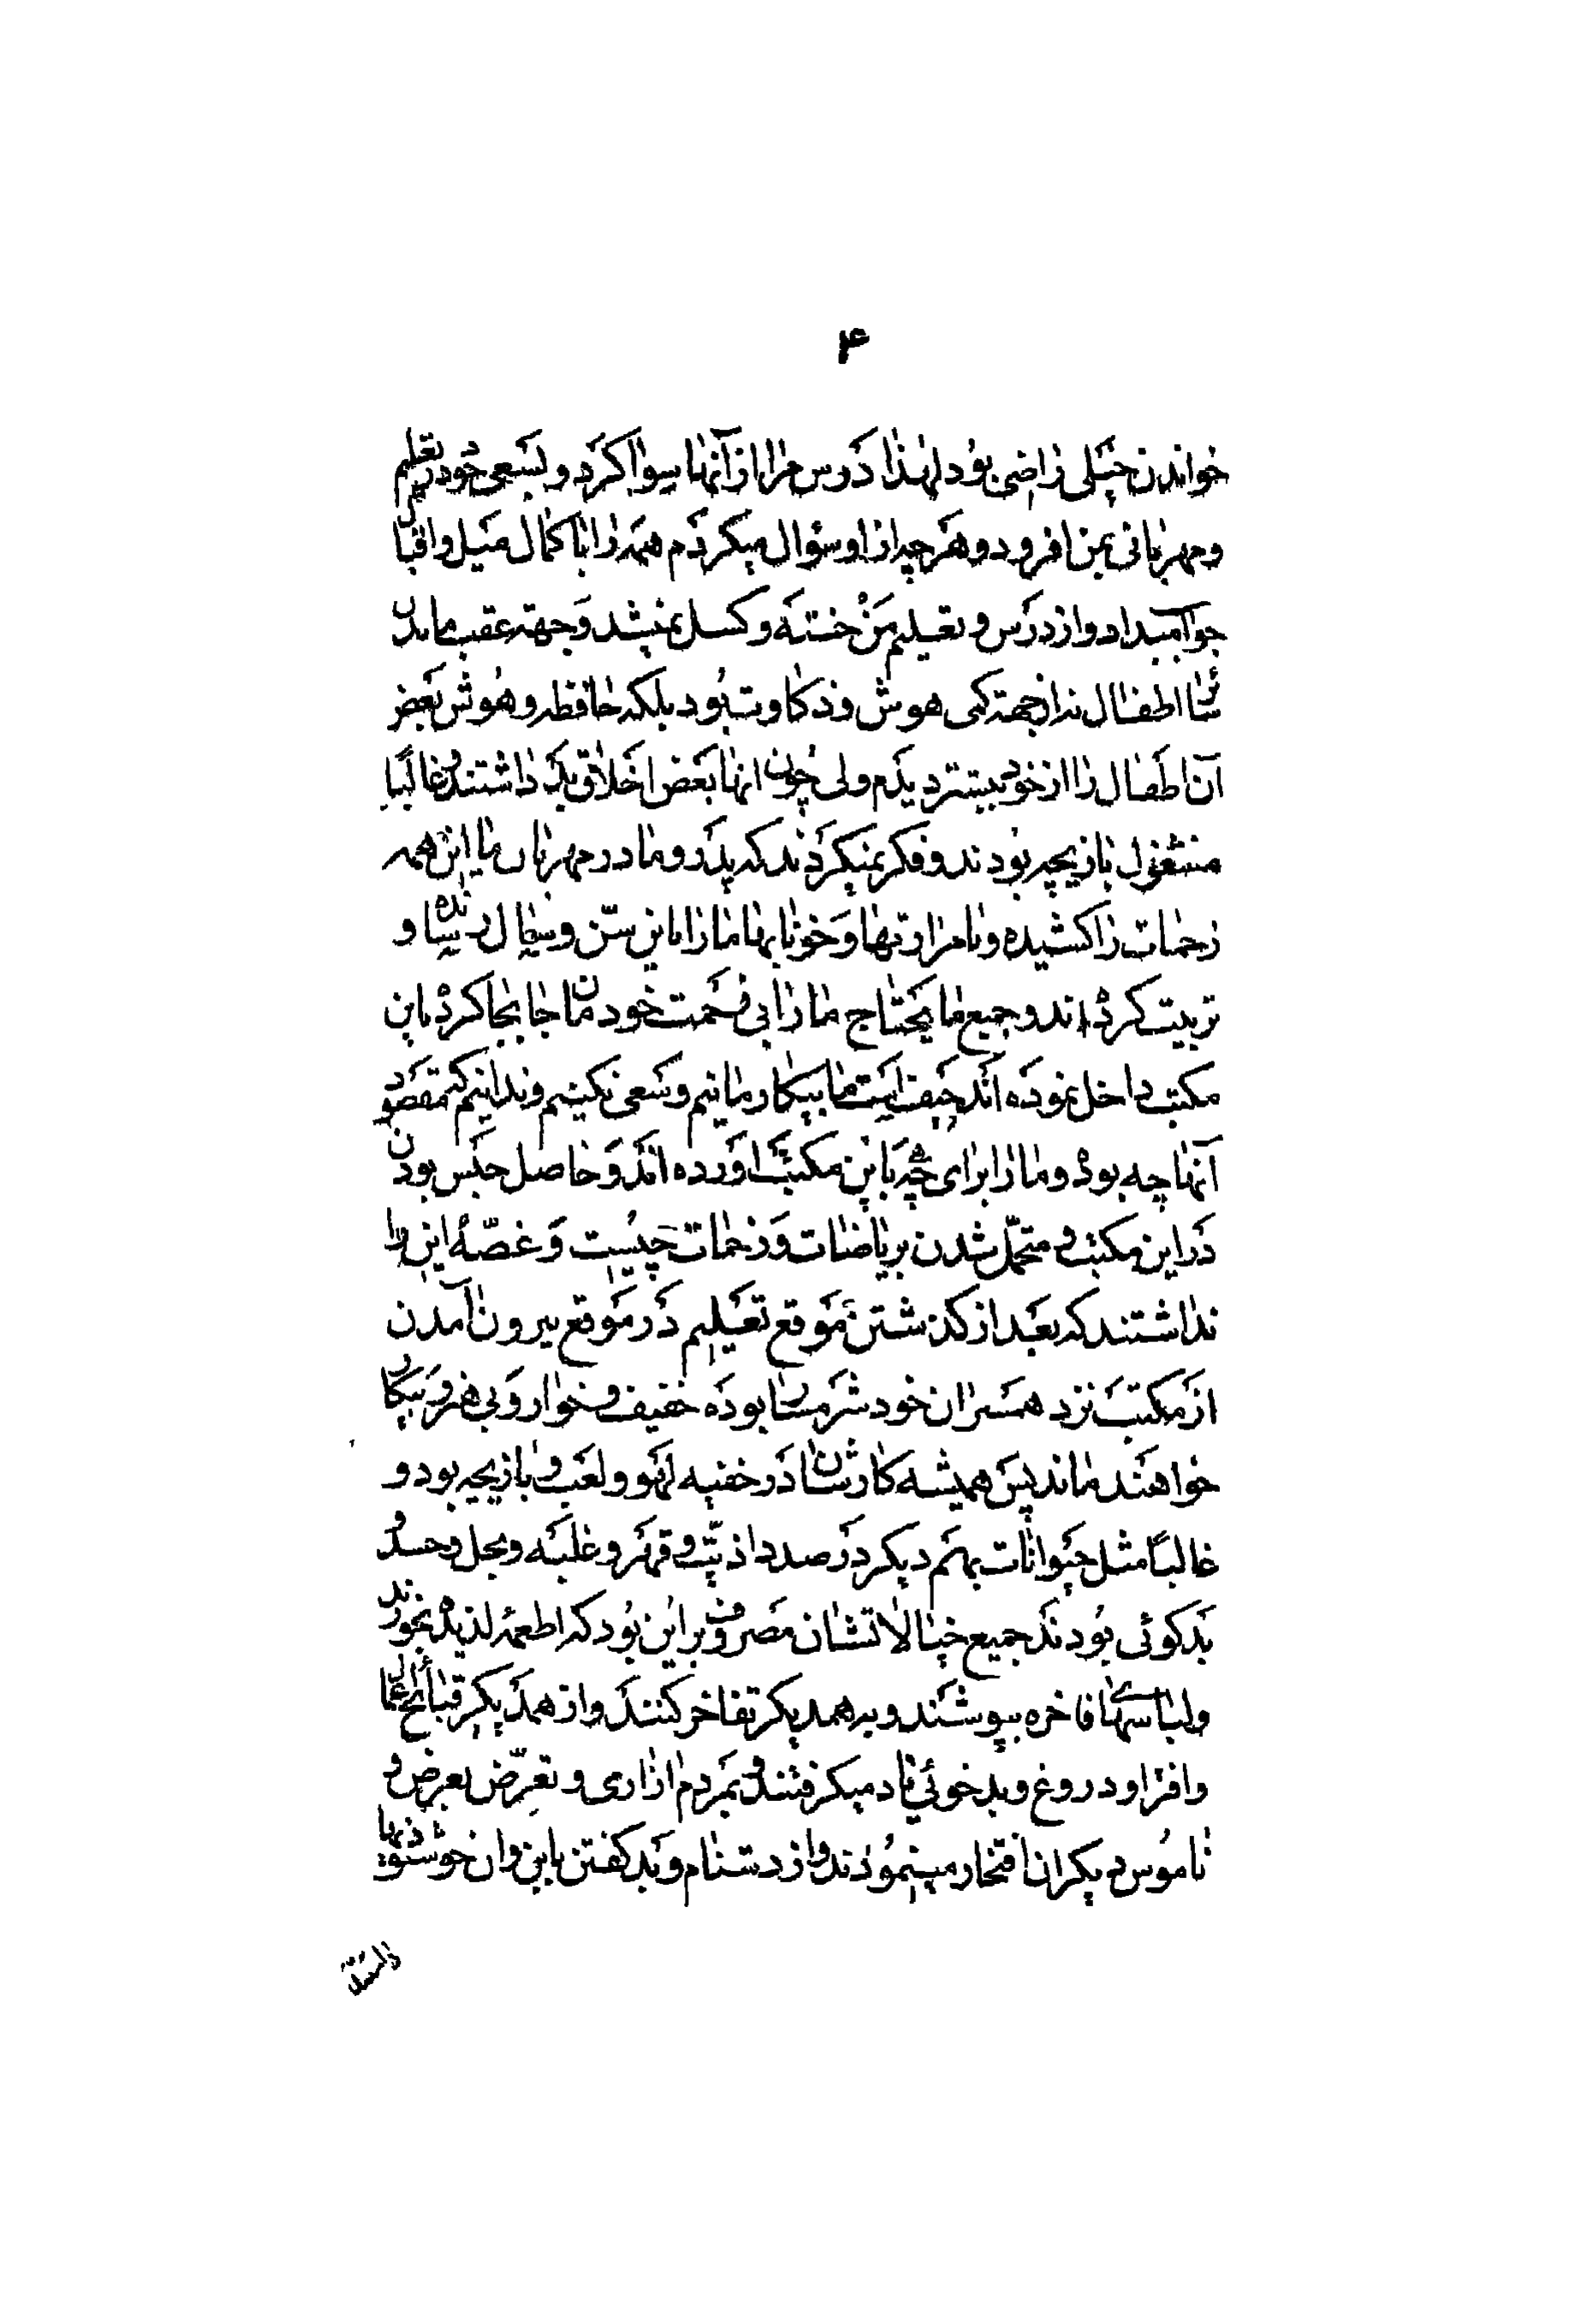 ۴
خواندن خیلی راضی بود لهذا درس مرا از آنها سوا کرد و بسعی خود در تعلیم
و مهربانی بمن افزود و هر چه از او سؤال میکردم همه را با کمال میل و اقبال
جواب میداد و از درس و تعلیم من خسته و کسل نمیشد و جهته عقب ماندن
سائر اطفال نه از جهته کمی هوش و ذکاوت بود بلکه حافظه و هوش بعض
آن اطفال را از خود بیشتر دیدم ولی چون انها بعض اخلاق بد داشتند و غالبًا
مشغول بازیچه بودند و فکر نمیکردند که پدر و مادر مهربان ما این همه
زحمات را کشیده و با مرارتها و خونابها ما را باین سن و سال رسانده و
تربیت کرده اند و جمیع مایحتاج ما را بی زحمت خودمان جابجا کرده باین
مکتب داخل نموده اند حیف است ما بیکار مانیم و سعی نکنیم و ندانیم که مقصود
آنها چه بود و ما را برای چه باین مکتب آورده اند و حاصل حبس بودن
در این مکتب و متحمّل شدن بریاضات و زحمات چیست و غصّهٔ این را
نداشتند که بعد از کذشتن موقع تعلیم در موقع بیرون آمدن
از مکتب نزد همسران خود شرمسار بوده خفیف و خوار و بی هنر و بیکار
خواهند ماند پس همیشه کارشان در خفیه لهو و لعب و بازیچه بود و
غالبًا مثل حیوانات بهم دیکر در صدد اذیّت و قهر و غلبه و بخل و حسد و
بد کوئی بودند جمیع خیالاتشان مصروف بر این بود که اطعمهٔ لذیذه بخورند
و لباسهای فاخره بپوشند و به همدیکر تفاخر کنند و از همدیکر قبائح اعمال
و افترا و دروغ و بدخوئی یاد میکرفتند و بمردم ازاری و تعرّض بعرض و
ناموس دیکران افتخار مینمودند و از دشنام و بد کفتن باین و ان خوشنود